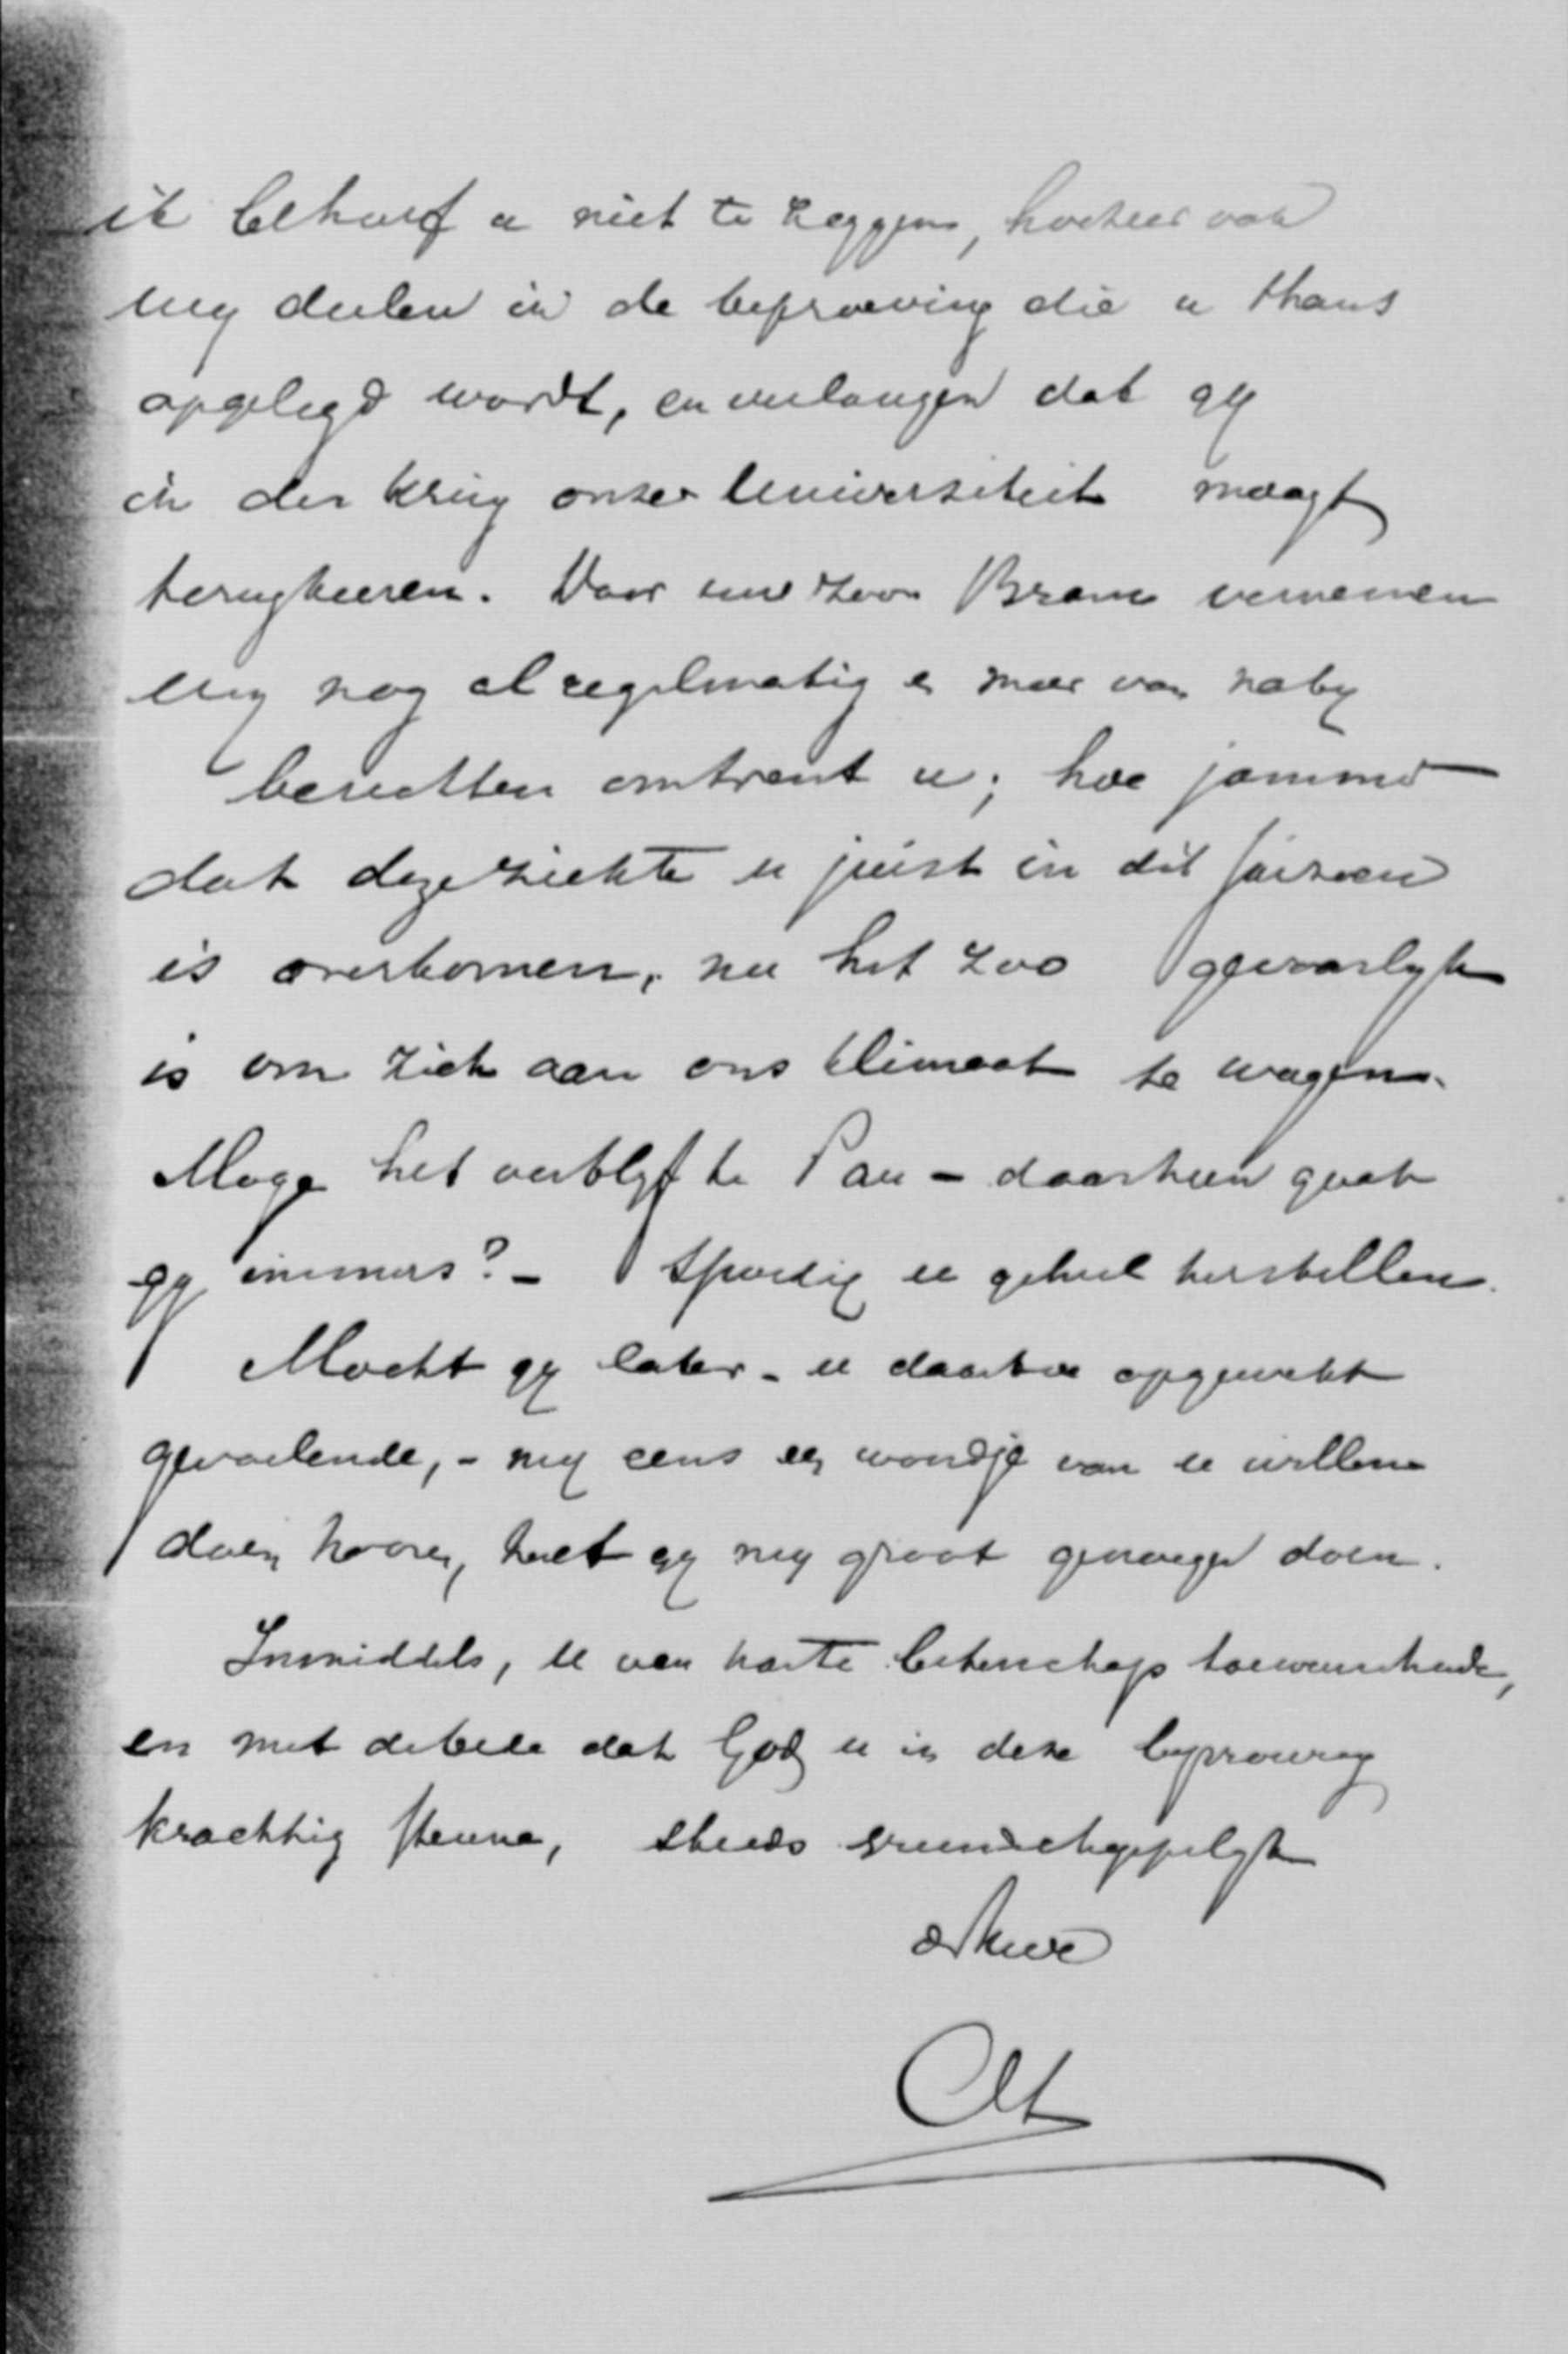 ik behoef u niet te zeggen, hoezeer ook
wy deelen in de beproeving die u thans
opgelegd wordt, en verlangen dat gy
in den kring onzer Universiteit moogt
terugkeeren. Door uwe zoon Bram vernemen
wy nog al regelmatig en meer van naby
berichten omtrent u; hoe jammer
dat deze ziekte u juist in dit saizoen
is overkomen, nu het zoo gevaarlyk
is om zich aan ons klimaat te wagen.
Moge het verblyf te Pau – daarheen gaat
gy immers? – spoedig u geheel herstellen.
Mocht gy later – u daartoe opgewekt
gevoelende, – my eens een woordje van u willen
doen hooren, het gy my groot genoegen doen.
Inmiddels, u van harte beterschap toewenschende,
en met de bede dat God u in deze beproeving
krachtig steune, steeds vriendschappelyk